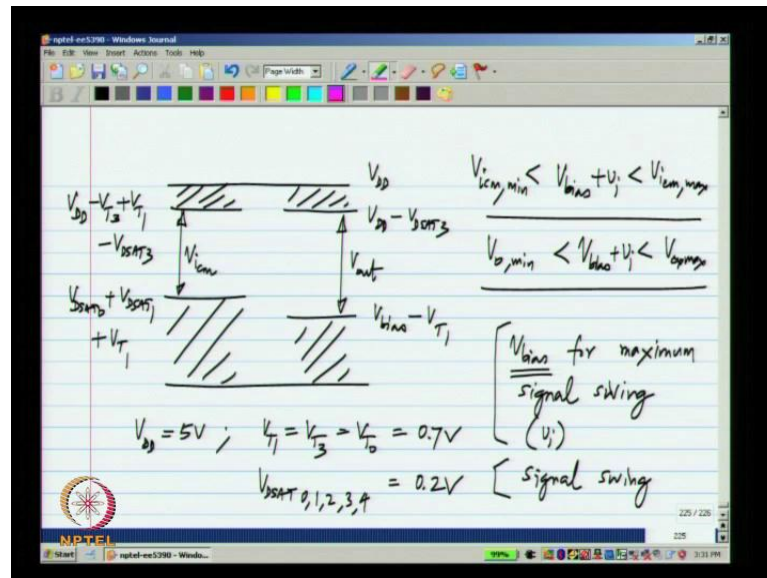 nptel-ee5390 - Windows Journal
File Edit View Insert Actions Tools Help
Page Width
B I
V_DD
V_DD - V_T3 + V_T1
- V_DSAT3
V_DD - V_DSAT3
V_icm
V_out
V_DSAT0 + V_DSAT1
+ V_T1
V_bias - V_T1
V_icm,min < V_bias + v_i < V_icm,max
V_o,min < V_bias + v_i < V_o,max
V_bias for maximum
signal swing
(v_i)
V_DD = 5V ; V_T1 = V_T3 = V_T0 = 0.7V
V_DSAT 0,1,2,3,4 = 0.2V
[ signal swing
225 / 226
225
NPTEL
Start
nptel-ee5390 - Windo...
99%
3:31 PM